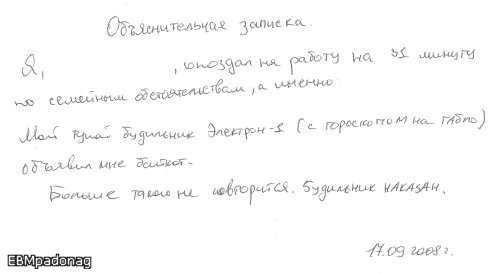 Объяснительная записка.
Я, , опоздал на работу на 31 минуту
по семейным обстоятельствам, а именно:
Мой тупой будильник Электрон-1 (с гороскопом на табло)
объявил мне бойкот.
Больше такого не повторится. Будильник НАКАЗАН.
17.09 2008 г.
EBMpadonag